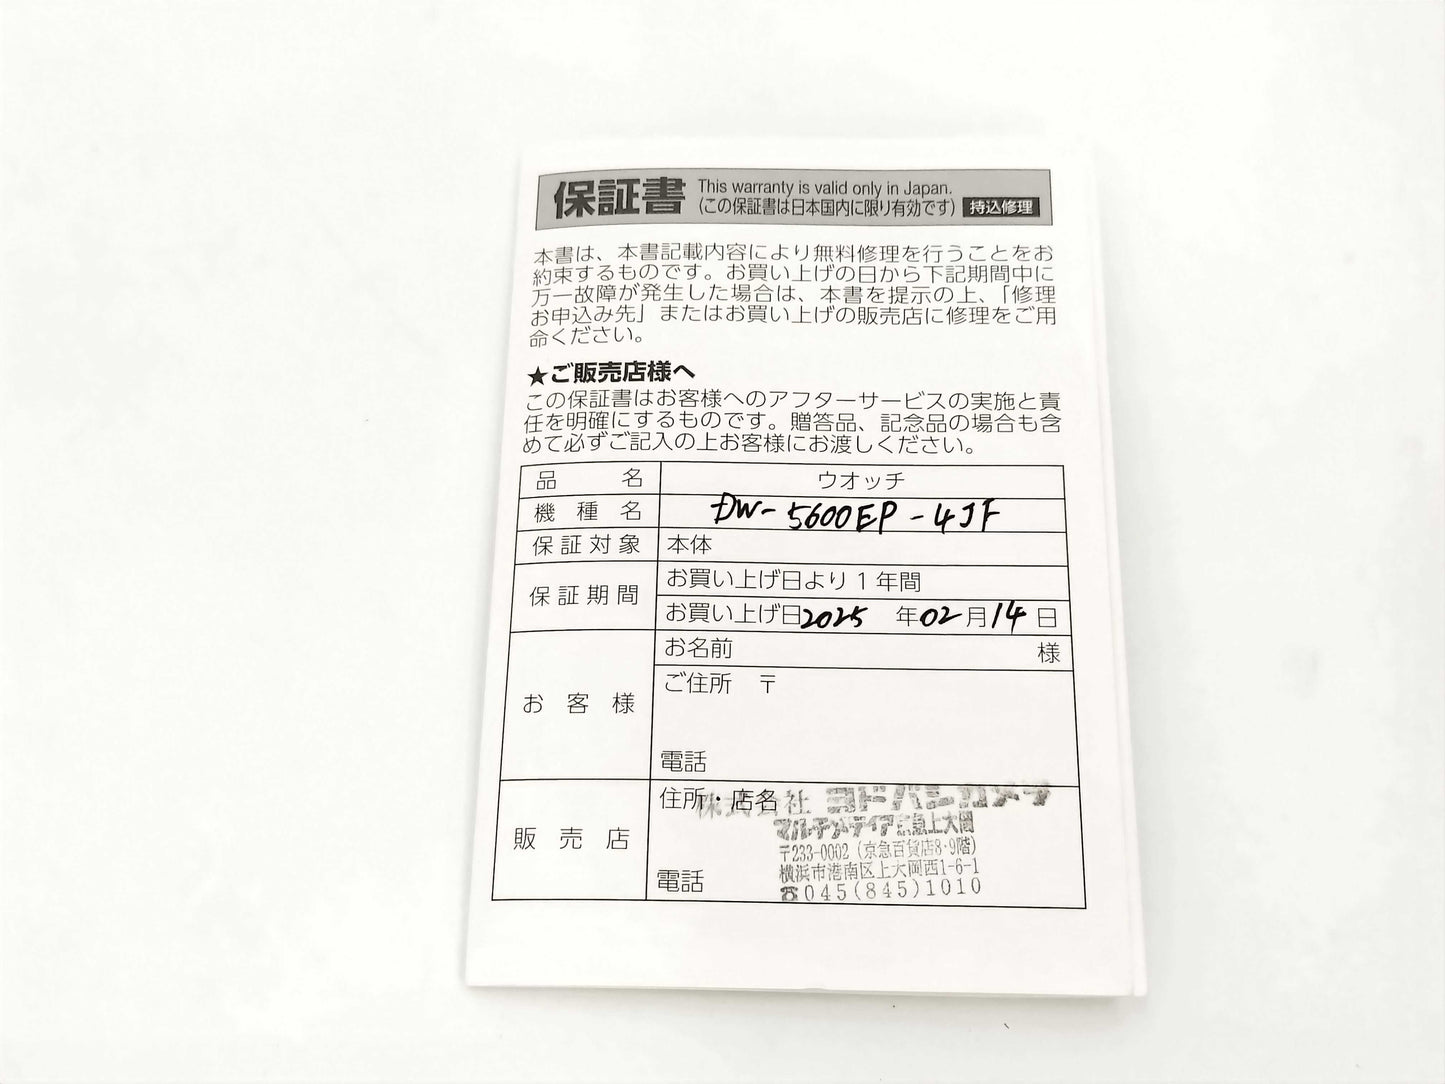 保証書
This warranty is valid only in Japan.
(この保証書は日本国内に限り有効です) 持込修理
本書は、本書記載内容により無料修理を行うことをお
約束するものです。お買い上げの日から下記期間中に
万一故障が発生した場合は、本書を提示の上、「修理
お申込み先」またはお買い上げの販売店に修理をご用
命ください。
★ご販売店様へ
この保証書はお客様へのアフターサービスの実施と責
任を明確にするものです。贈答品、記念品の場合も含
めて必ずご記入の上お客様にお渡しください。
品名 ウオッチ
機種名 DW-5600EP-4JF
保証対象 本体
保証期間 お買い上げ日より1年間
お買い上げ日2025年02月14日
お客様 お名前 様
ご住所 〒
電話
販売店 住所・店名
株式会社 ヨドバシカメラ
マルチメディア京急上大岡
〒233-0002 (京急百貨店8・9階)
横浜市港南区上大岡西1-6-1
電話
☎045(845)1010